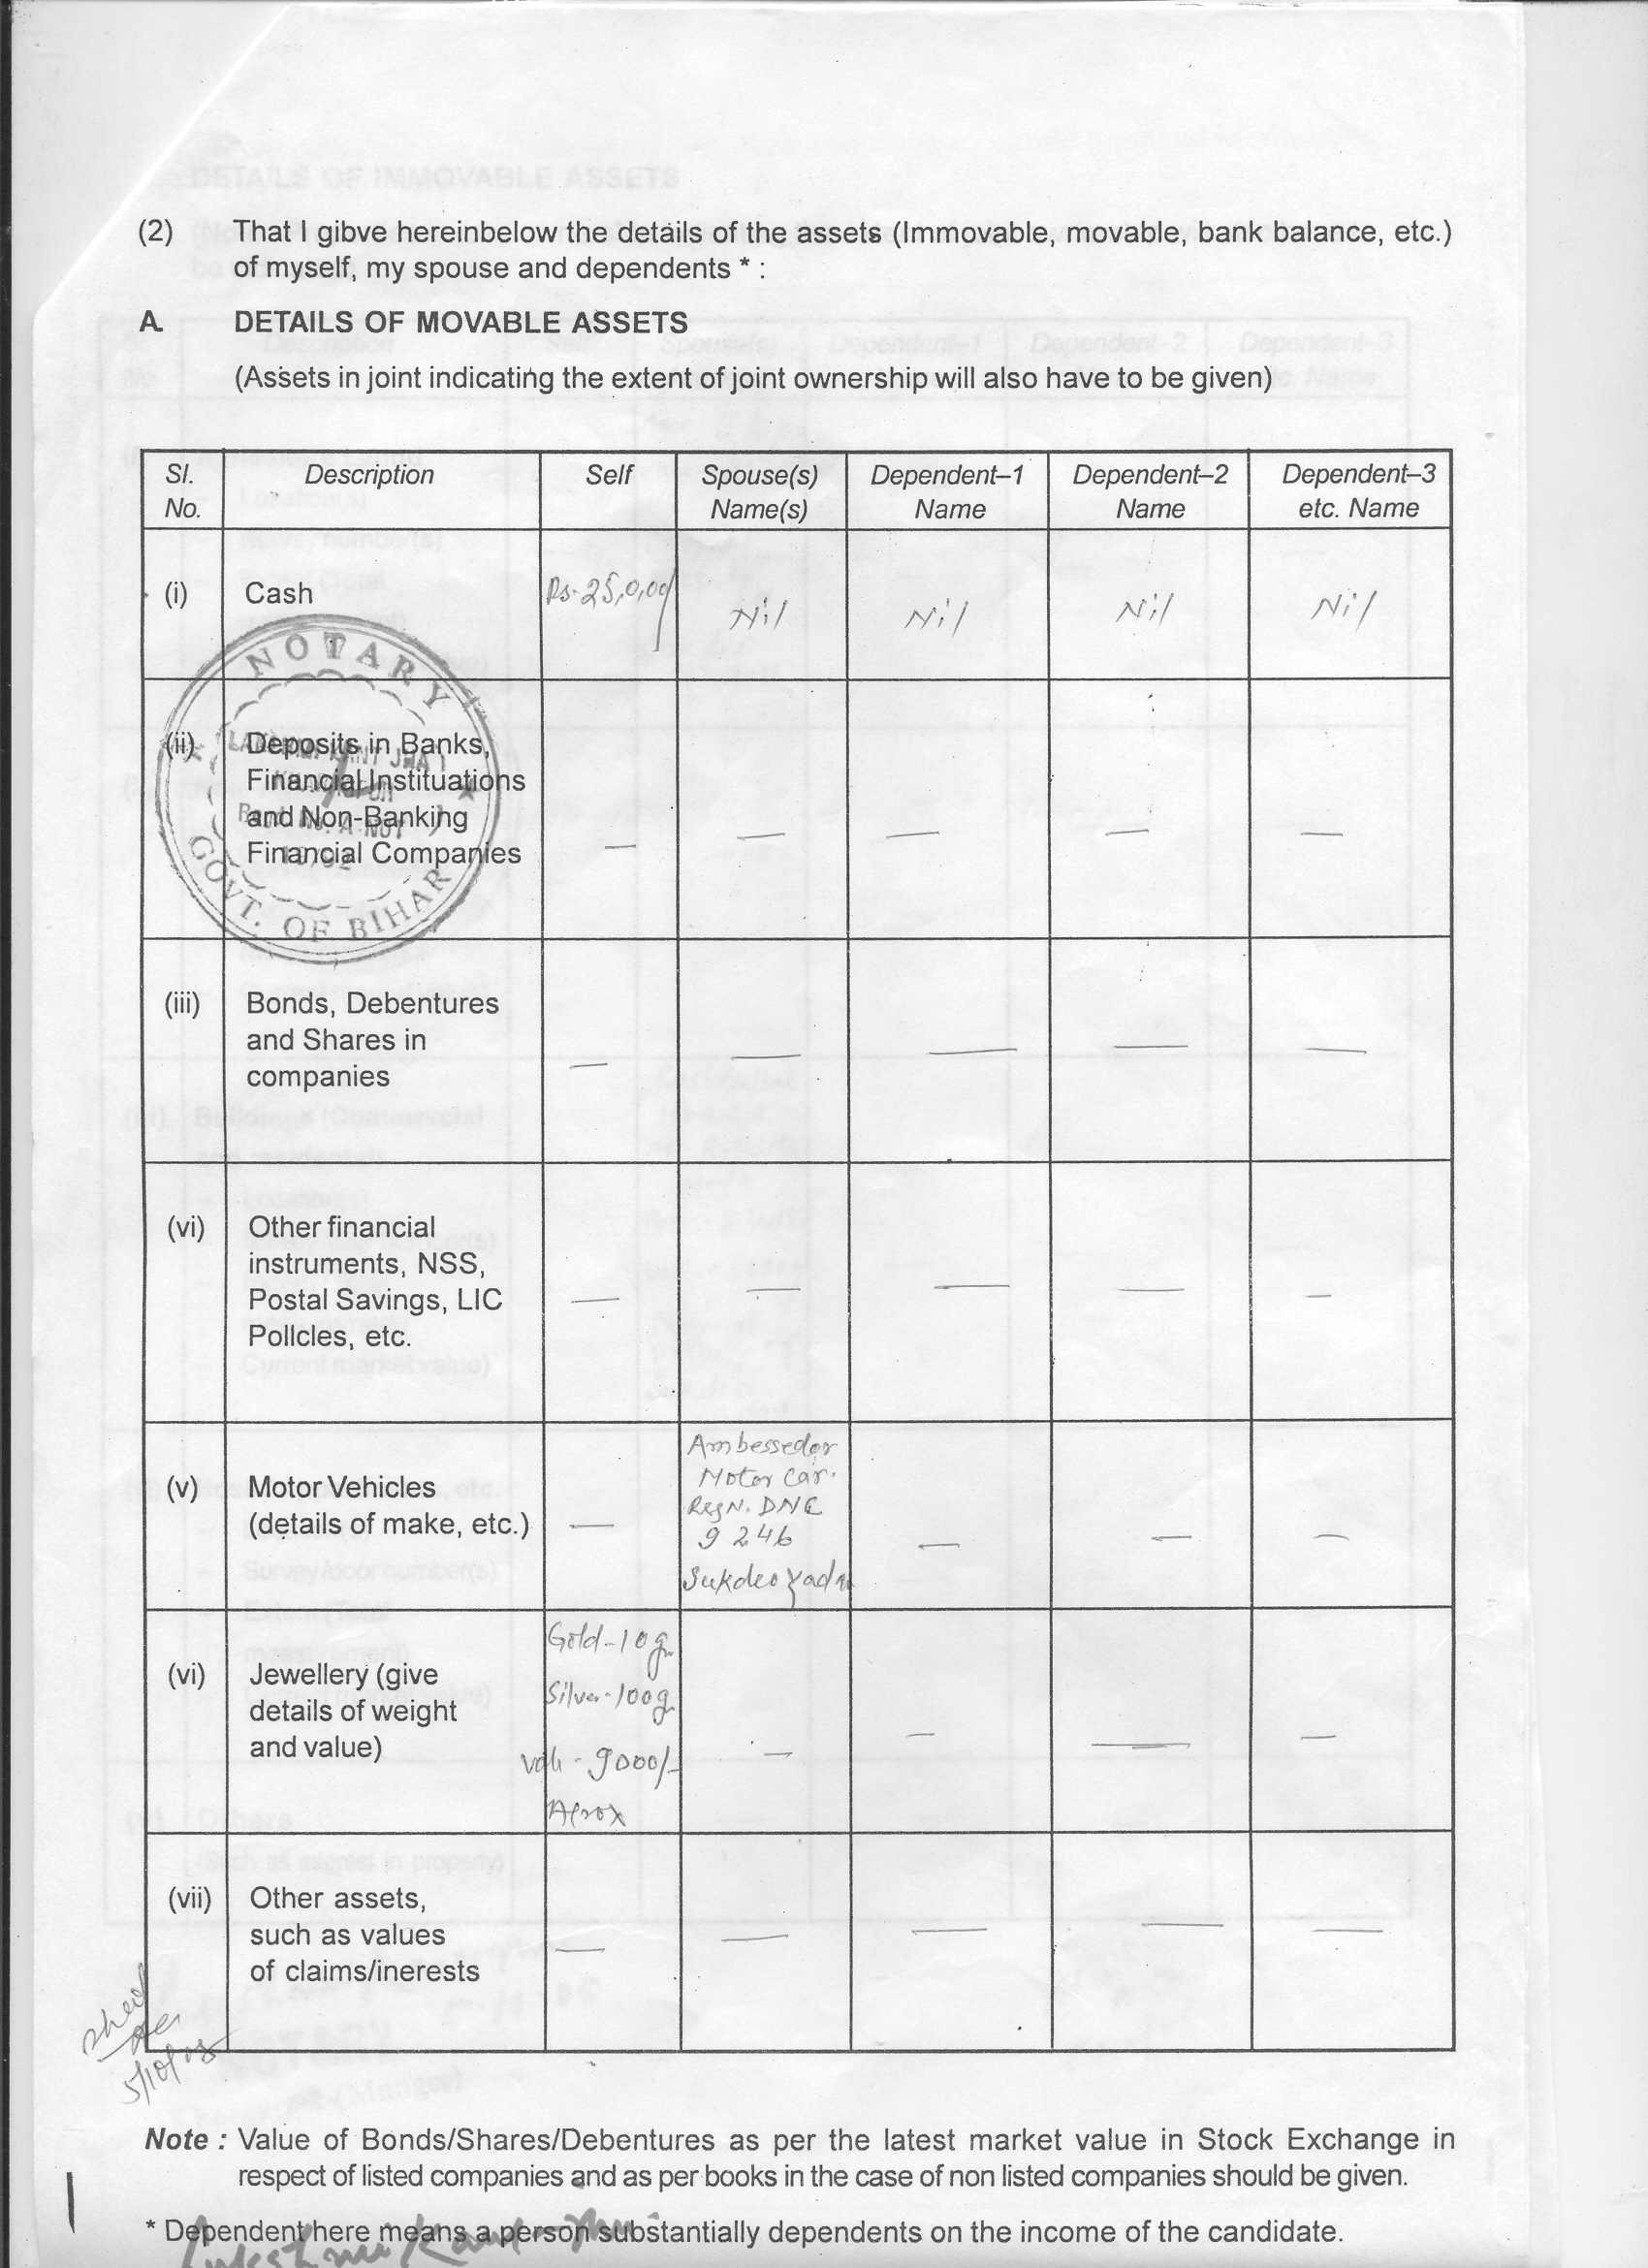 (2) That I gibve hereinbelow the details of the assets (Immovable, movable, bank balance, etc.)
of myself, my spouse and dependents * :
A. DETAILS OF MOVABLE ASSETS
(Assets in joint indicating the extent of joint ownership will also have to be given)
Sl. No. Description Self Spouse(s) Name(s) Dependent–1 Name Dependent–2 Name Dependent–3 etc. Name
(i) Cash Rs. 25,0,00/ Nil Nil Nil Nil
NOTARY
GOVT. OF BIHAR
(ii) Deposits in Banks,
Financial Instituations
and Non-Banking
Financial Companies
— — — — —
(iii) Bonds, Debentures
and Shares in
companies
— — — — —
(vi) Other financial
instruments, NSS,
Postal Savings, LIC
Policles, etc.
— — — — —
(v) Motor Vehicles
(details of make, etc.)
—
Ambessedor
Motor Car.
RegN. DNC
9246
Sukdeo Yadav
— — —
(vi) Jewellery (give
details of weight
and value)
Gold - 10 g
Silver - 100 g
9000/-
— — — —
(vii) Other assets,
such as values
of claims/inerests
— — — — —
5/10/05
Note : Value of Bonds/Shares/Debentures as per the latest market value in Stock Exchange in
respect of listed companies and as per books in the case of non listed companies should be given.
* Dependent here means a person substantially dependents on the income of the candidate.